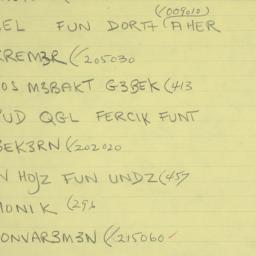 (009010)
EL FUN DORT+ (A HER
KREM3R (205030
OS M3BAKT G3BEK (413
UD QGL FERCIK FUNT
BEK3RN (202020
N HOJZ FUN UNDZ (457
HONIK (296
ONVAR3M3N (215060